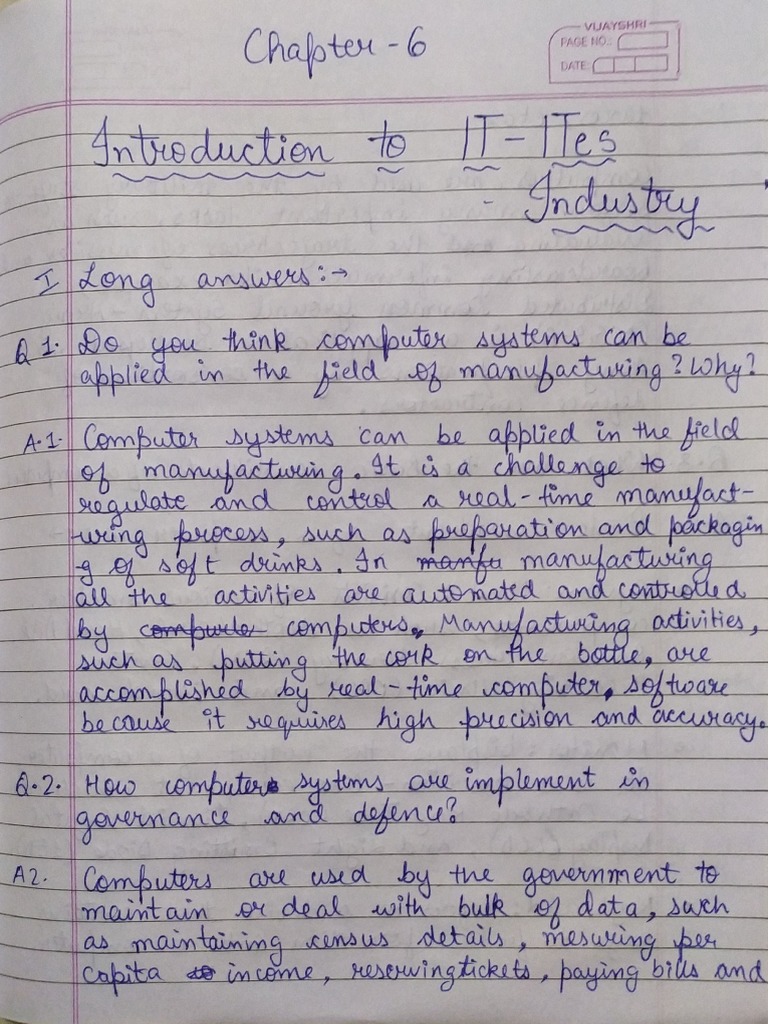 Chapter-6
VIJAYSHRI
PAGE NO.:
DATE:
Introduction to IT-ITes
- Industry
I Long answers:→
Q1. Do you think computer systems can be
applied in the field of manufacturing? Why?
A.1. Computer systems can be applied in the field
of manufacturing. It is a challenge to
regulate and control a real-time manufact-
uring process, such as preparation and packagin
g of soft drinks. In manfu manufacturing
all the activities are automated and controlled
by compute computers. Manufacturing activities,
such as putting the cork on the bottle, are
accomplished by real-time computer, software
because it requires high precision and accuracy.
Q.2. How computer systems are implement in
governance and defence?
A2. Computers are used by the government to
maintain or deal with bulk of data, such
as maintaining census details, mesuring per
capita to income, reserving tickets, paying bills and